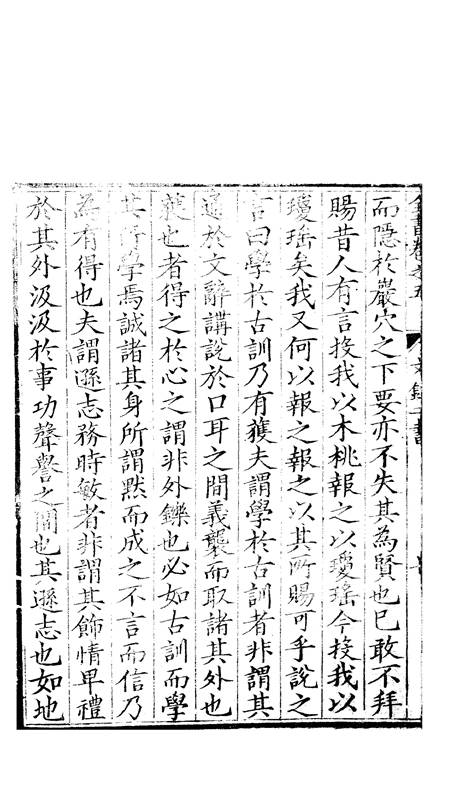 而隱於巖穴之下要亦不失其為賢也已敢不拜
賜昔人有言投我以木桃報之以瓊瑤今投我以
瓊瑤矣我又何以報之報之以其所賜可乎說之
言曰學於古訓乃有獲夫謂學於古訓者非謂其
通於文辭講說於口耳之間義襲而取諸其外也
獲也者得之於心之謂非外鑠也必如古訓而學
其所學焉誠諸其身所謂默而成之不言而信乃
為有得也夫謂遜志務時敏者非謂其飾情卑禮
於其外汲汲於事功聲譽之間也其遜志也如地